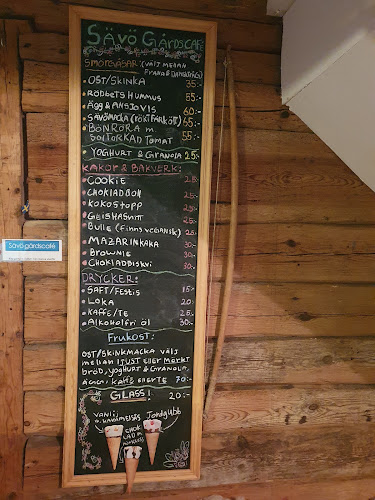 Sävö Gårdscafé
SMÖRGÅSAR:(VÄLJ MELLAN
FRANSK & DANSKRÅG)
• OST/SKINKA 35:-
• RÖDBETSHUMMUS 55:-
• ÄGG & ANSJOVIS 60:-
• SÄVÖMACKA (RÖKT FÅRKÖTT) 65:-
• BÖNRÖRA m. 55:-
SOLTORKAD TOMAT
• YOGHURT & GRANOLA 25:-
KAKOR & BAKVERK:
• COOKIE 25:-
• CHOKLADBOLL 25:-
• KOKOSTOPP 25:-
• GEISHASNITT 25:-
• BULLE (FINNS VEGANSK) 30:-
• MAZARINKAKA 30:-
• BROWNIE 30:-
• CHOKLADBISKVI 30:-
DRYCKER:
• SAFT/FESTIS 15:-
• LOKA 20:-
• KAFFE/TE 25:-
• Alkoholfri öl 30:-
Frukost:
OST/SKINKMACKA VÄLJ
mellan LJUST eller MÖRKT
bröd, YOGHURT & GRANOLA,
ÄGG, KAFFE eller TE 70:-
GLASS! 20:-
VANILJ Jordgubb
CHOK
LAD
Sävö gårdscafé